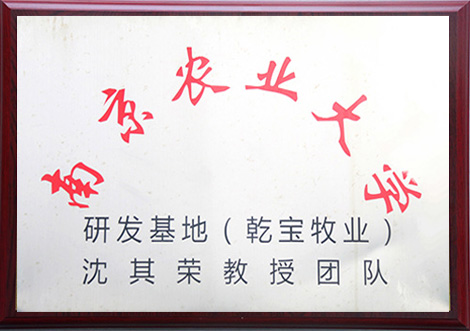 南京农业大学
研发基地（乾宝牧业）
沈其荣教授团队